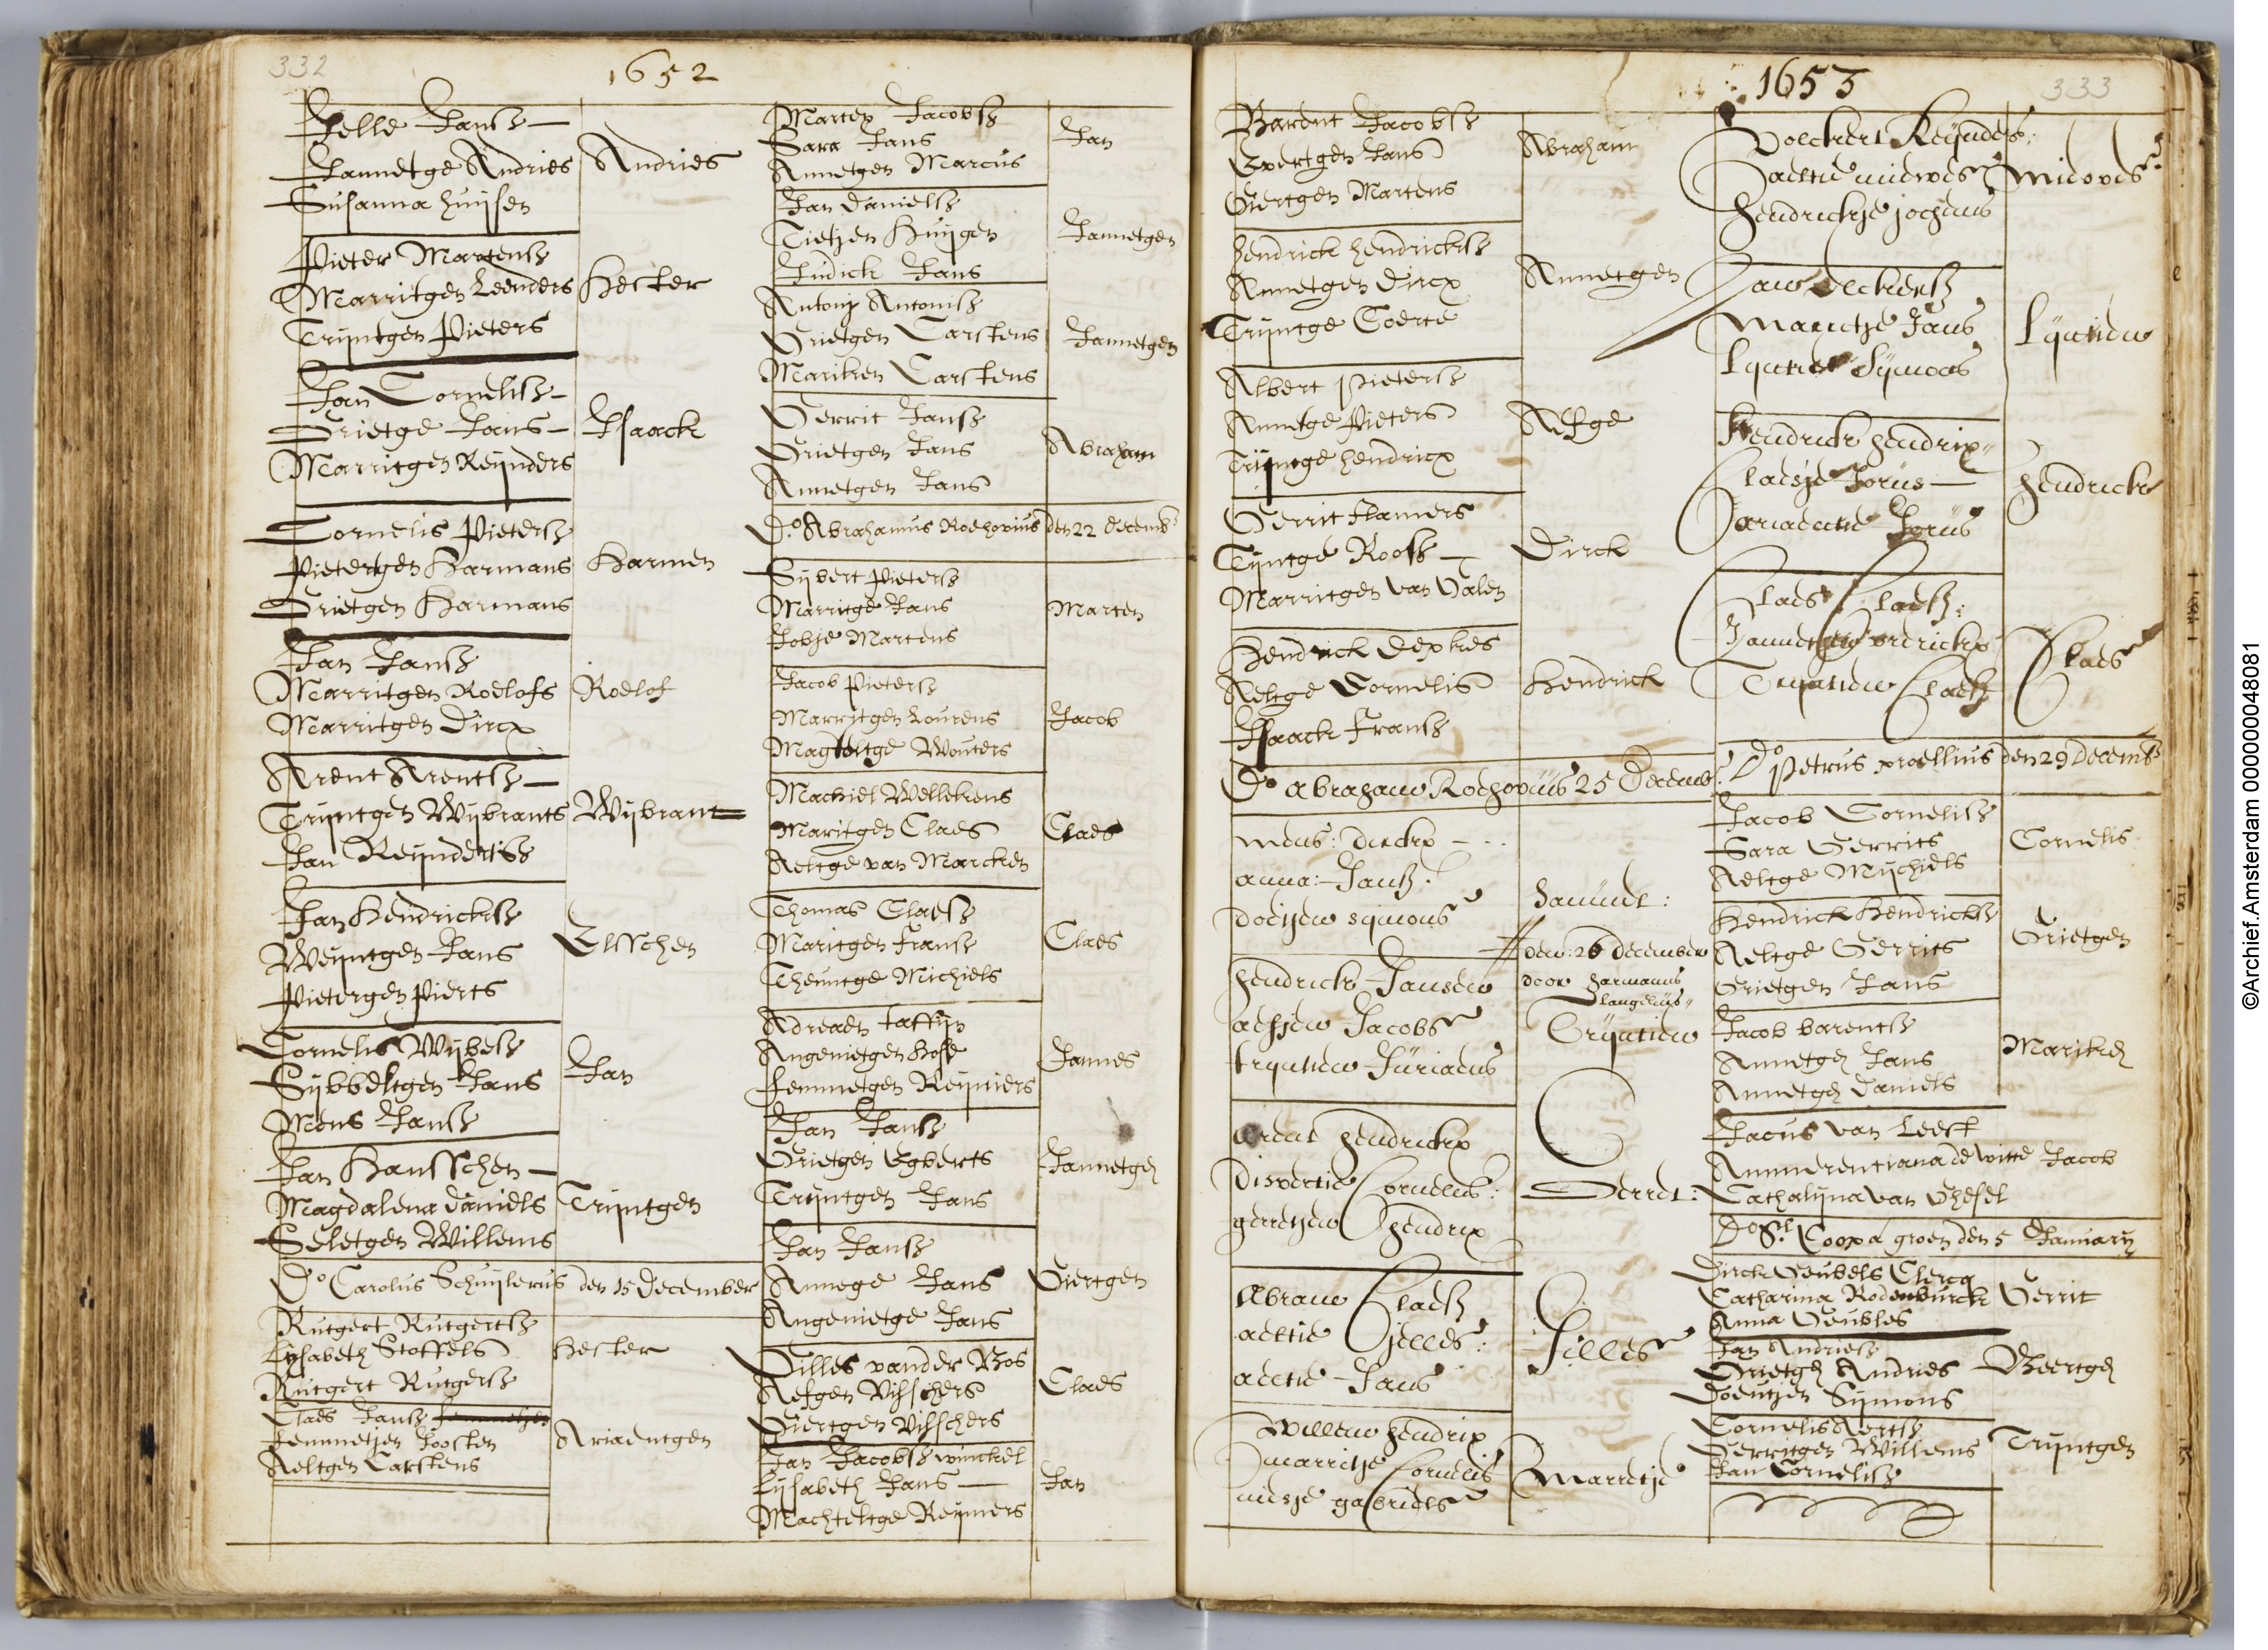 332
1652
Jelle Jansz
Jannetge Andries
Susanna huijsen
Andries
Pieter Martensz
Marritgen Leenders
Trijntgen Pieters
Hester
Jan Cornelisz
Grietge Jans
Marritgen Reijnders
Isaack
Cornelis Pietersz
Pietertgen Harmans
Grietgen Harmans
Harmen
Jan Jansz
Marritgen Roelofs
Marritgen Dircx
Roelof
Arent Arentsz
Trijntgen Wijbrants
Jan Reijndertsz
Wijbrant
Jan Hendricksz
Weijntgen Jans
Pietergen Pierts
Elsschen
Cornelis Wijbesz
Sijbbeltgen Jans
Mons Jansz
Jan
Jan Hansschen
Magdalena daniels
Seletgen Willems
Trijntgen
Do Carolus Schuijlerus den 15 December
Rutgert Rutgertsz
Lijsabeth Stoffels
Rutgert Rutgersz
Hester
Claes Jansz
Femmetjen Joosten
Aeltgen Carstens
Ariaentgen
Marten Jacobsz
Sara Jans
Annetgen Marcus
Jan
Jan Danielsz
Tietjen Huijgen
Judick Jans
Jannetgen
Antonij Antonisz
Grietgen Carstens
Mariken Carstens
Jannetgen
Gerrit Jansz
Grietgen Jans
Annetgen Jans
Abraham
Do Abrahamus Roehovius den 22 decemb
Sijbert Pietersz
Marritge Jans
Jobje Martens
Marten
Jacob Pietersz
Marritgen Lourens
Magteltge Wouters
Jacob
Machiel Wellekens
Maritgen Claes
Aeltge van Marcken
Claes
Thomas Claesz
Maritgen Fransz
Theuntge Michiels
Claes
Adreaen taffijn
Angenietgen Hofe
Femmetgen Reijniers
Jannes
Jan Jansz
Grietgen Egberts
Trijntgen Jans
Jannetgen
Jan Jansz
Annege Jans
Angenietge Jans
Giertgen
Gilles vander Bos
Aefgen Visschers
Giertgen Visschers
Claes
Jan Jacobsz winckel
Lijsabeth Jans
Machteltge Reijniers
Jan
1653
333
Barent Jacobsz
Evertgen Jans
Giertgen Martens
Abraham
Hendrick hendricksz
Annetgen Dircx
Trijntge Coerte
Annetgen
Albert Pietersz
Anntge Pieters
Trijntge hendricx
Aefge
Gerrit Hamers
Tijntge Roosz
Marritgen van Halen
Dirck
Hendrick Depkes
Aeltge Cornelis
Isaack Fransz
Hendrick
Do Abraham Rochovius 25 Decemb:
Mens: dirckx
anna: Jansz.
doetjen sijmons
Samuel:
den: 26 December
door Harmanus
Langelius
hendrick Jansen
aefjen Jacobs
trijntien Juriaens
Trijntien
arent hendrickx
Diewertie Cornelis:
gerretjen hendrix
Gerret:
Abram Claesz
aeltie Jilles:
aeltie Jans
Jilles
Willem hendrix
marritje Cornelis
niesje gabriels
Marretje
Volckert Reijnders:
hendrickje jochems
Jan deckersz
Marritje Jans
Lijntie Sijmons
Lijntien
Hendrick hendrix
Claesje Joris
Jariaentie Joris
hendrick
Claes Claesz:
Trijntien Claesz
Claes
Do Petrus proellius den 29 Decemb
Jacob Cornelisz
Sara Gerrits
Aeltge Mijchiels
Cornelis
Hendrick Hendricksz
Aeltge Gerrits
Grietgen Jans
Grietgen
Jacob barentsz
Annetgen Jans
Annetgen Daniels
Mariken
Jacus van Leest
Anna erentiana de witte
Cathalijna van Ghesel
Jacob
Do Sl. Coop a groen den 5 Januarij
Dirck Geubels Clercq
Catharina Rodenburch
Anna Geubles
Gerrit
Jan Andriesz
Grietgen Andries
Doentjen Sijmons
Geertgen
Cornelis Aertsz
Gerritgen Willems
Jan Cornelisz
Trijntgen
©Archief.Amsterdam 000000048081